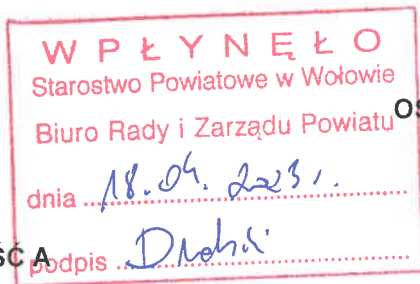 WPŁYNĘŁO
Starostwo Powiatowe w Wołowie
Biuro Rady i Zarządu Powiatu
OŚ
dnia 18.04.2023 r.
ŚĆ A
podpis